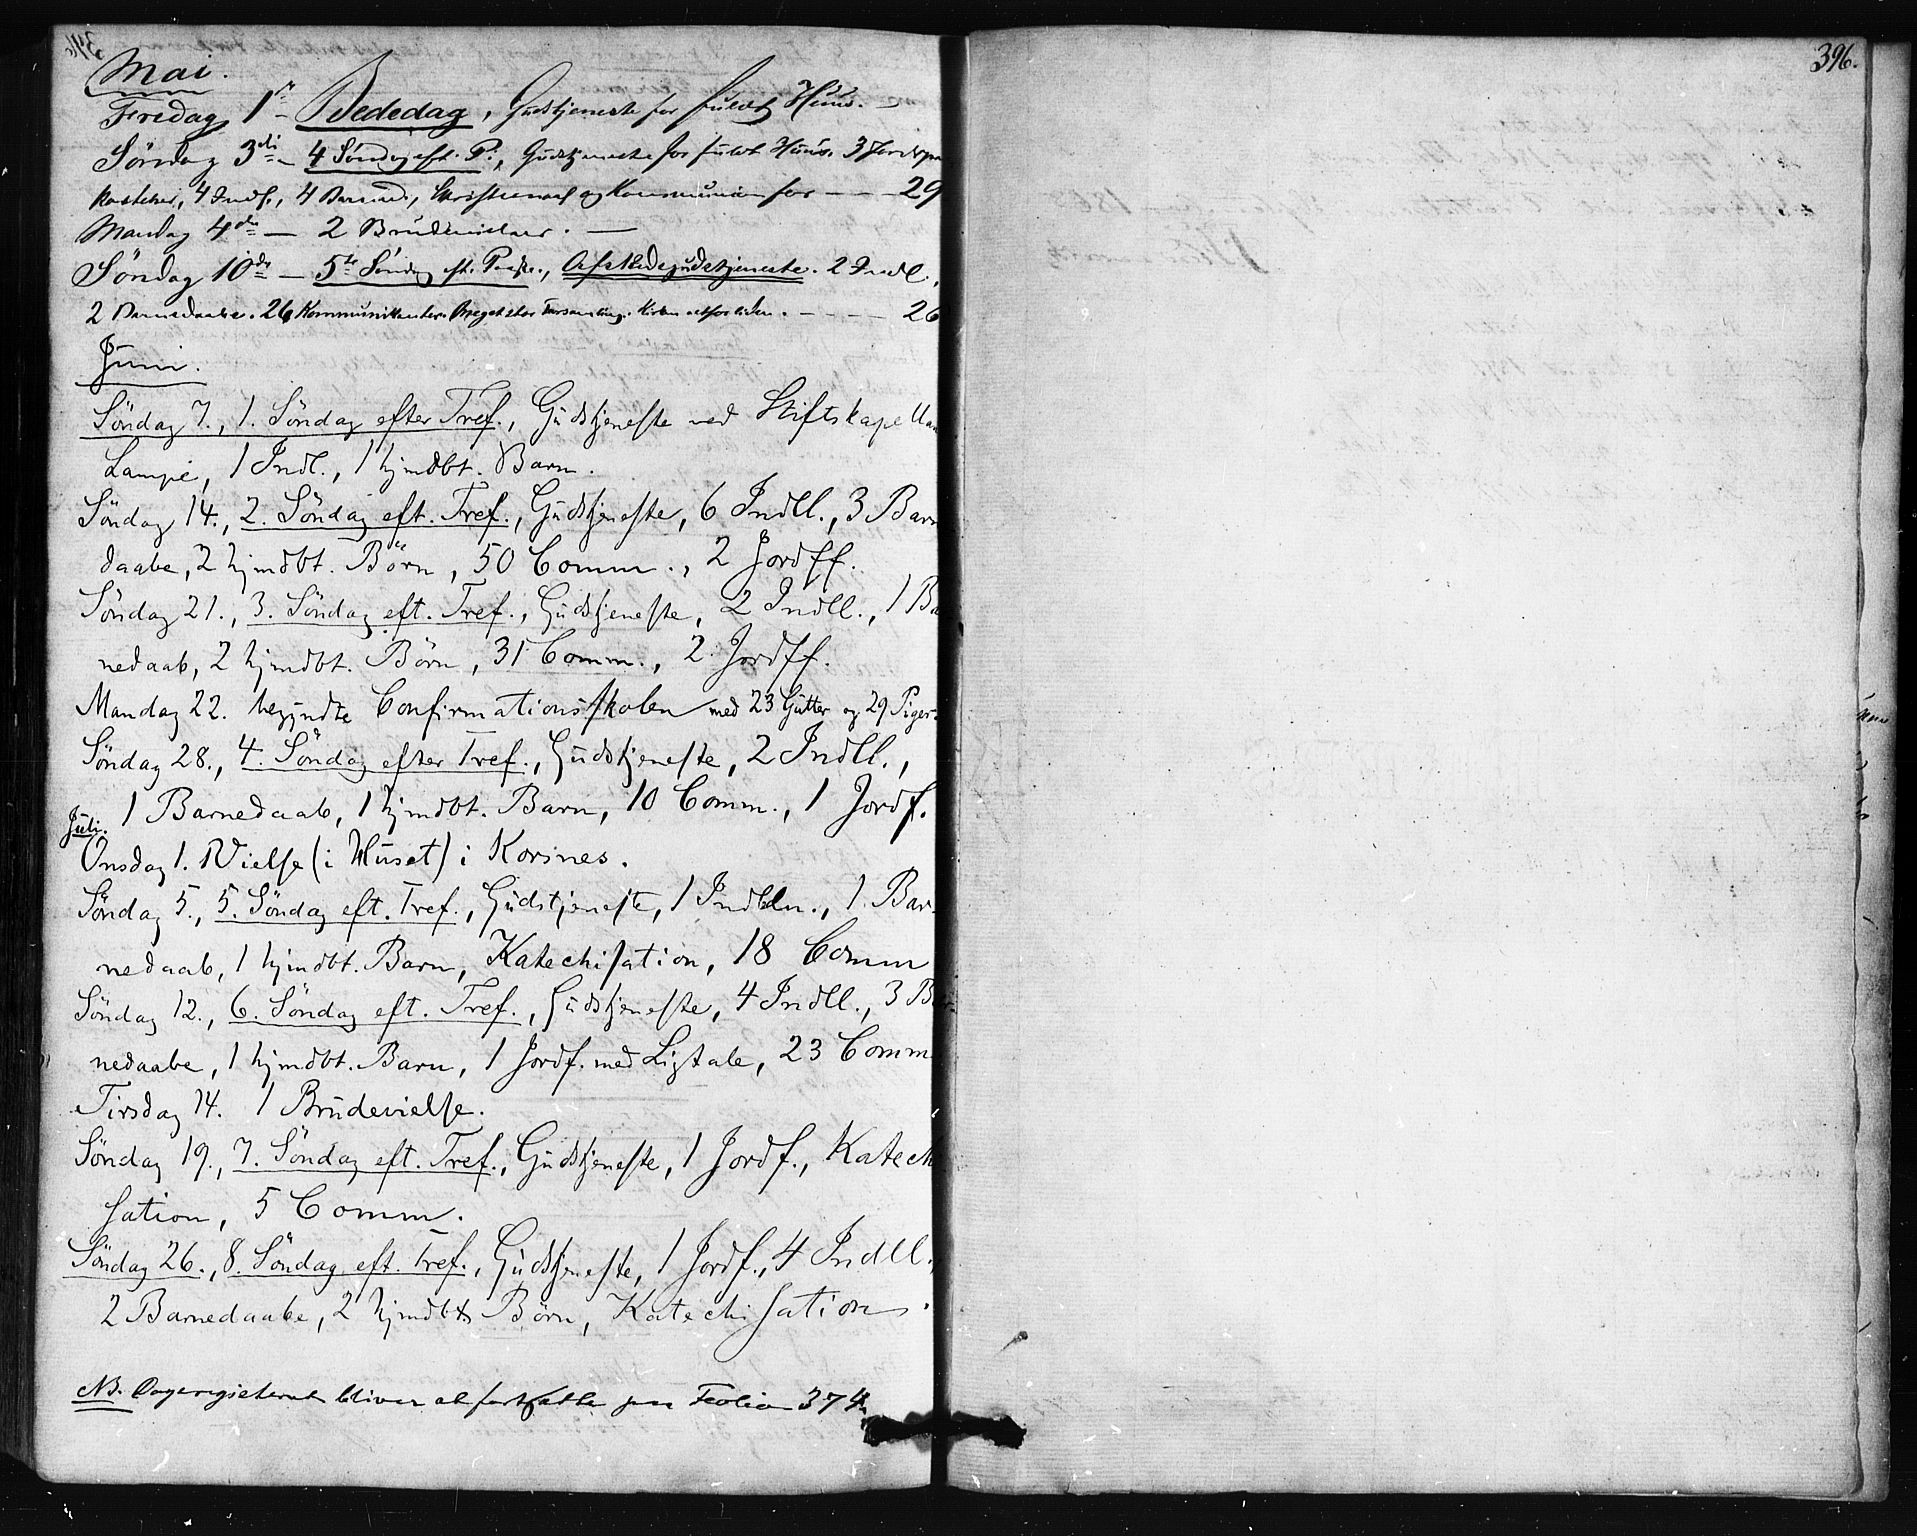 396.
Mai.
Fredag 1ste Bededag, Gudstjeneste for fuldt Huus. —
Søndag 3die — 4 Søndag eft. P., Gudstjeneste for fuldt Huus. 3 Jordspaa
kastelser, 4 Indl., 4 Barned., og Kommunion for — — 29
Mandag 4de — 2 Brudevielser. —
Søndag 10de — 5te Søndag eft. Paaske, Afskedsgudstjeneste. 2 Indl.,
2 Barnedaabe. 26 Kommunikanter. Meget stor Forsamling. Kirken altfor liden. — — — — 26
Juni.
Søndag 7., 1. Søndag efter Tref., Gudstjeneste ved Stiftskapellan
Lampe, 1 Indl., 1 hjmdbt. Barn.
Søndag 14., 2. Søndag eft. Tref., Gudstjeneste, 6 Indll., 3 Barne
daabe, 2 hjmdbt. Börn, 50 Comm., 2 Jordff.
Søndag 21., 3. Søndag eft. Tref., Gudstjeneste, 2 Indll., 1 Ba
nedaab, 2 hjmdbt. Börn, 31 Comm., 2 Jordff.
Mandag 22. begyndte Confirmationsskolen med 23 Gutter og 29 Piger.
Søndag 28., 4. Søndag efter Tref., Gudstjeneste, 2 Indll.,
1 Barnedaab, 1 hjmdbt. Barn, 10 Comm., 1 Jordf.
Juli.
Onsdag 1. Vielse (i Huset) i Korsnes.
Søndag 5., 5. Søndag eft. Tref., Gudstjeneste, 1 Indledn., 1 Bar-
nedaab, 1 hjmdbt. Barn, Katechisation, 18 Comm
Søndag 12., 6. Søndag eft. Tref., Gudstjeneste, 4 Indll., 3 Bar
nedaabe, 1 hjmdbt. Barn, 1 Jordf. med Ligtale, 23 Comm.
Tirsdag 14. 1 Brudevielse.
Søndag 19., 7. Søndag eft. Tref., Gudstjeneste, 1 Jordf., Katechi
sation, 5 Comm.
Søndag 26., 8. Søndag eft. Tref., Gudstjeneste, 1 Jordf., 4 Indll.,
2 Barnedaabe, 2 hjmdbt. Börn, Katechisation.
NB. Dagsregisteret bliver at fortsætte paa Folio 374.